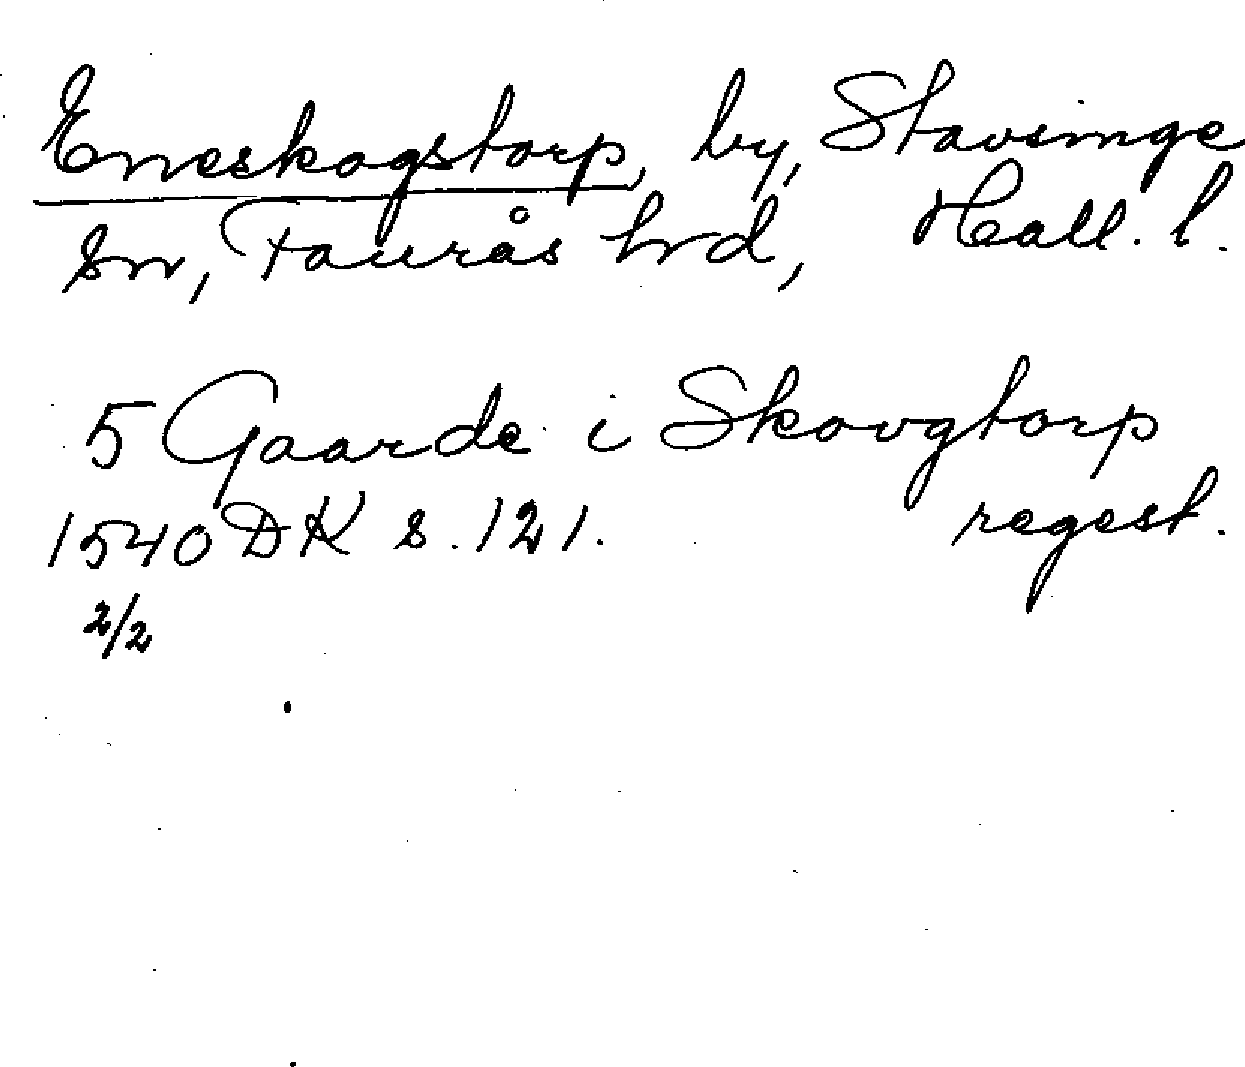 Eneskogstorp, by, Stavinge
sn, Faurås hrd, Hall. l.
5 Gaarde i Skovgtorp
1540 DK s. 121. regest.
2/2